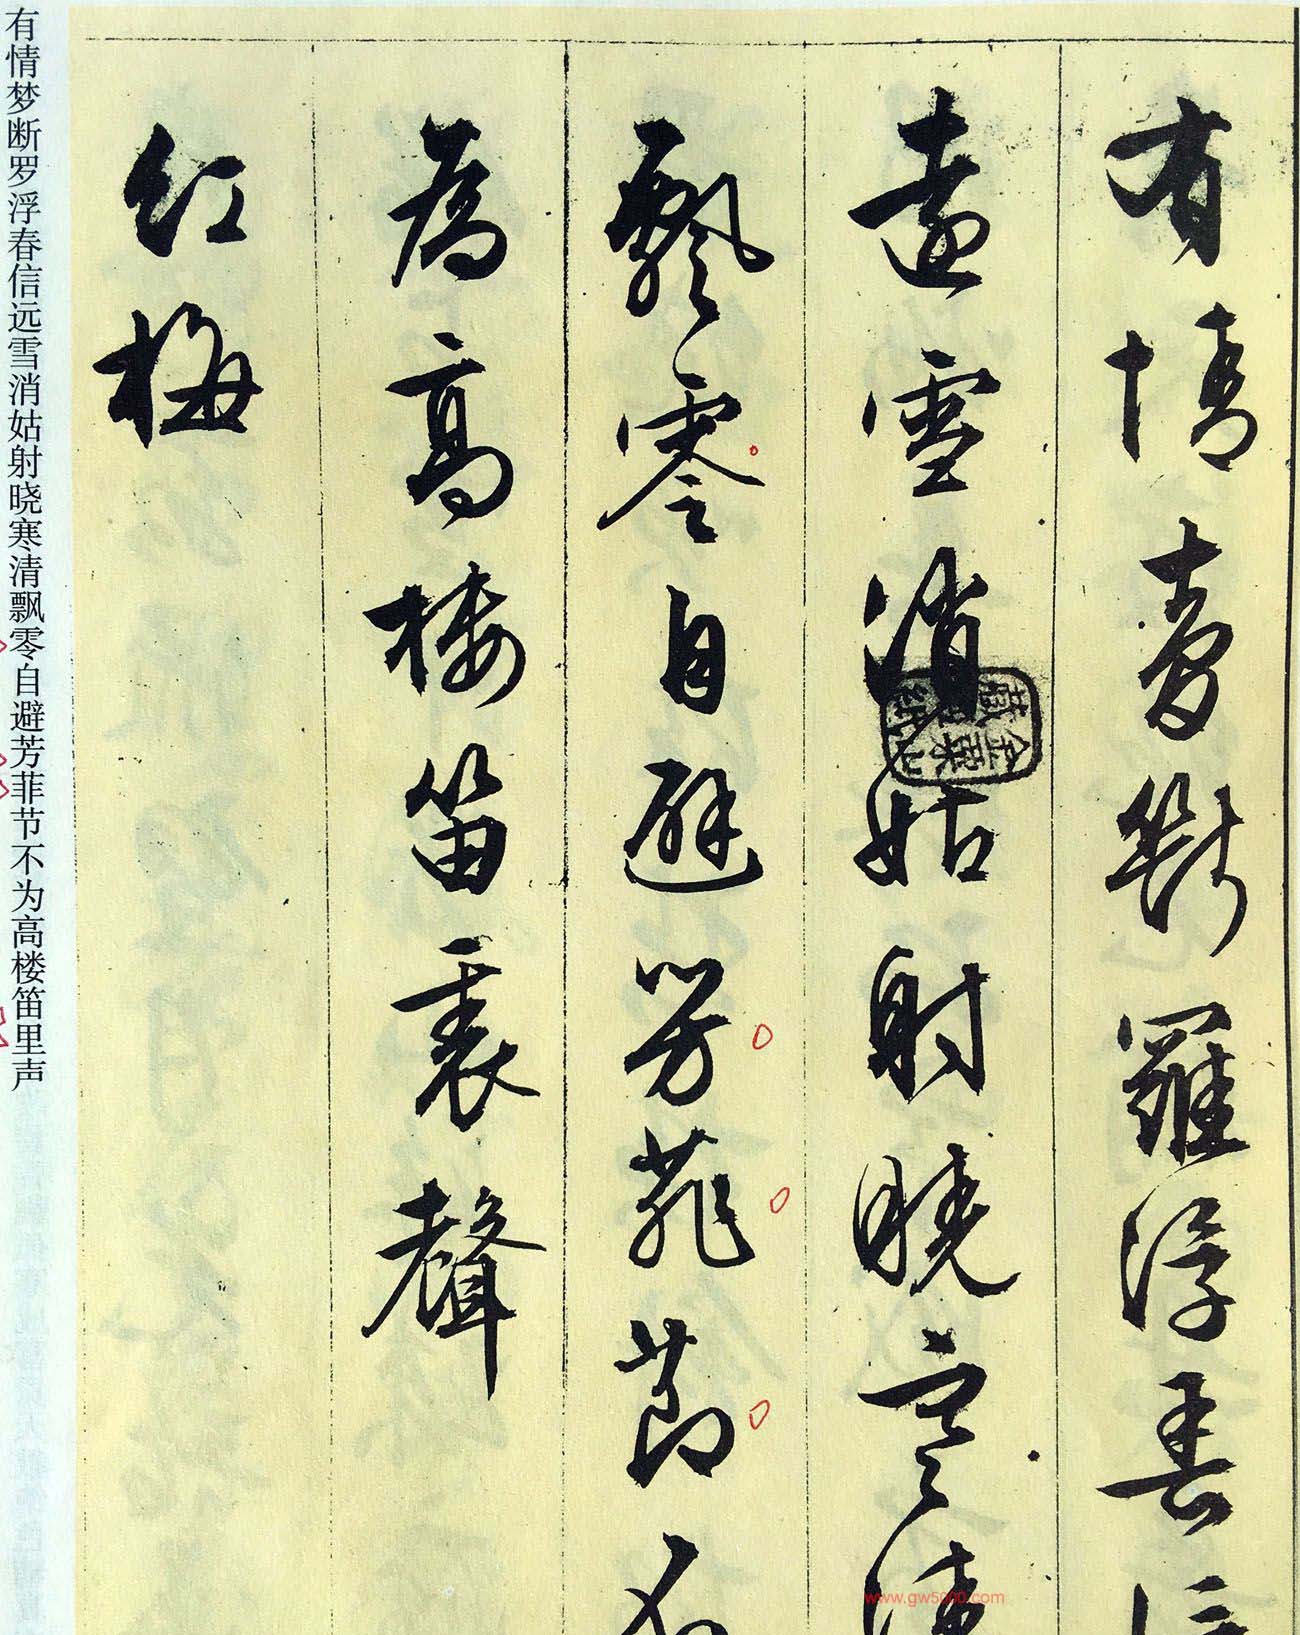 有情夢斷羅浮春信
遠雪消姑射曉寒清
飄零自避芳菲節不
為高樓笛裏聲
红梅
有情梦断罗浮春信远雪消姑射晓寒清飘零自避芳菲节不为高楼笛里声
www.gw5000.com